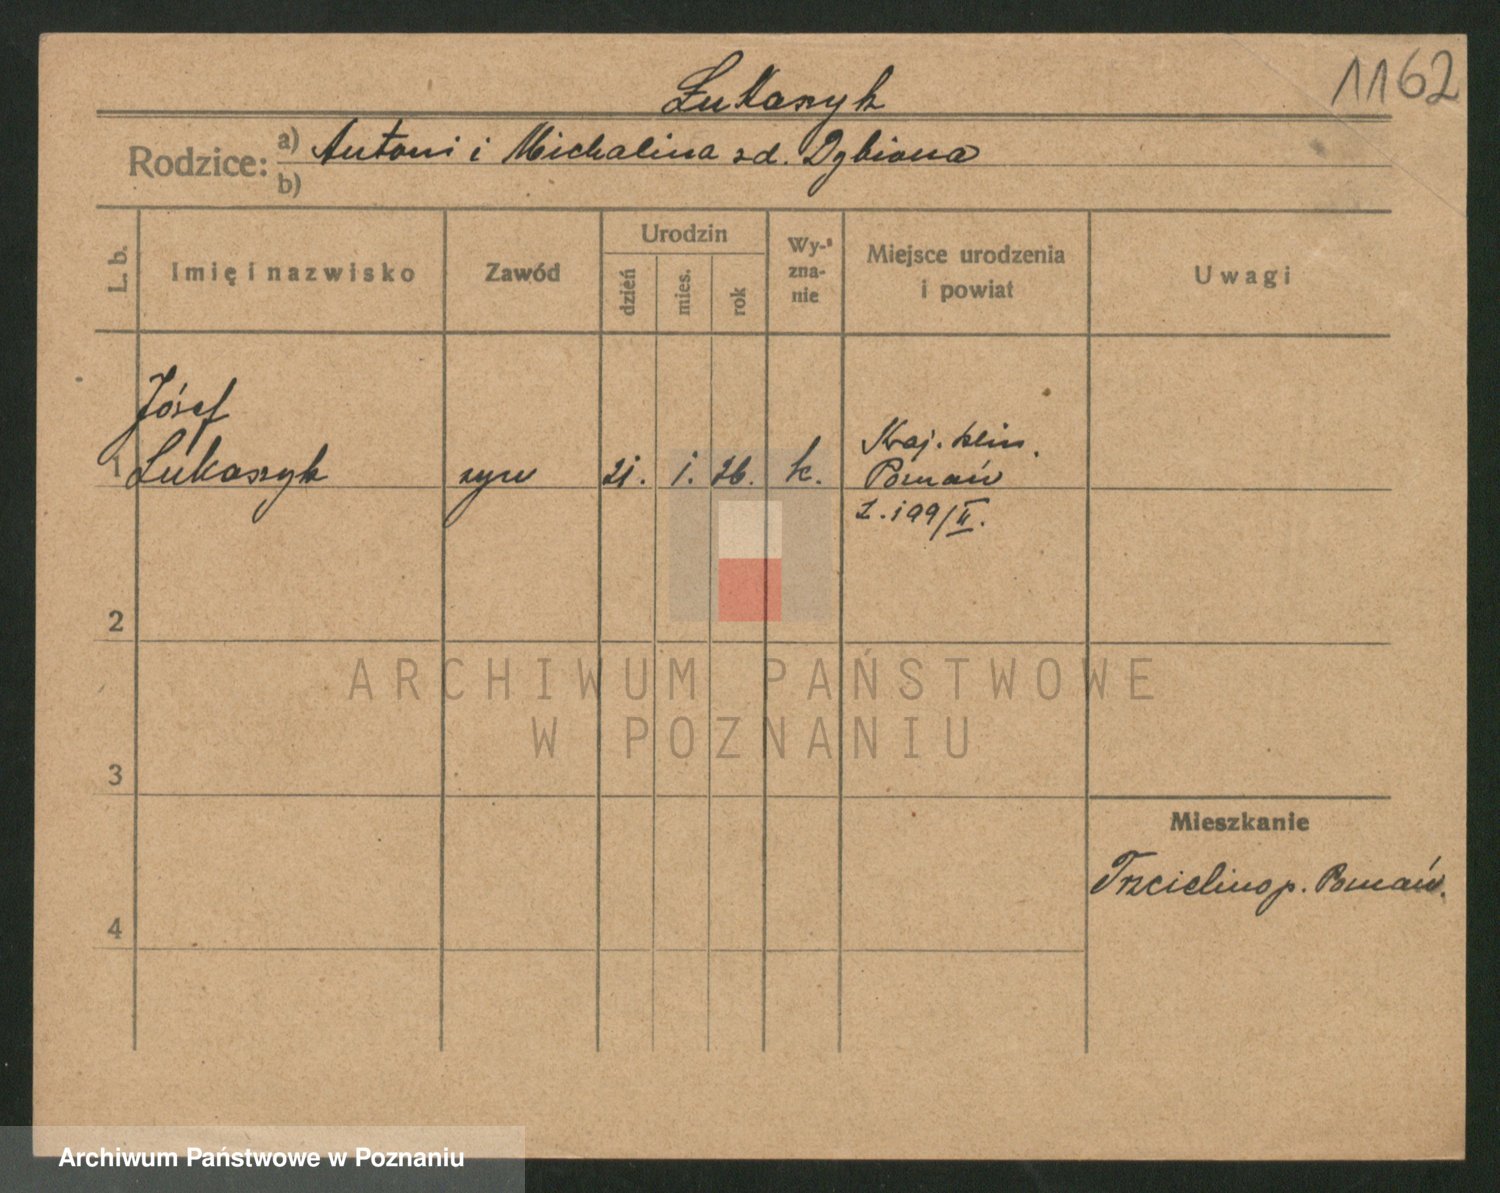 1162
Łukaszyk
Rodzice: a) Antoni i Michalina zd. Dybiona
b)
L. b.
Imię i nazwisko
Zawód
Urodzin
dzień
mies.
rok
Wy-
zna-
nie
Miejsce urodzenia
i powiat
Uwagi
Józef
1 Łukaszyk syn 21. 1. 26. k.
Kraj. klin.
Poznań
L. 199/II.
2
3
4
Mieszkanie
Trzcielino p. Poznań.
ARCHIWUM PAŃSTWOWE
W POZNANIU
Archiwum Państwowe w Poznaniu